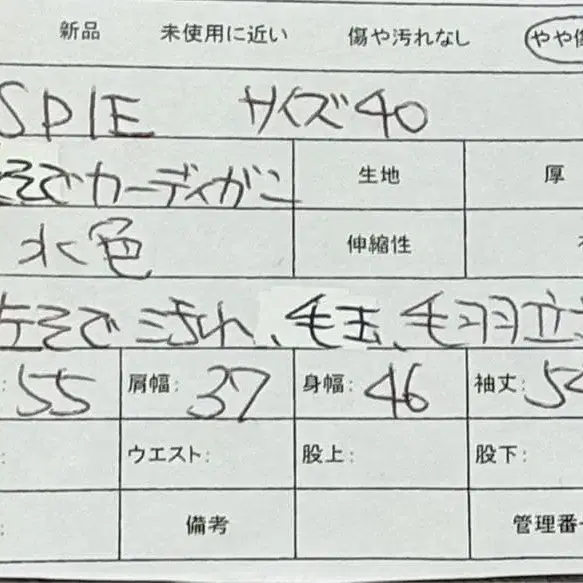 新品 未使用に近い 傷や汚れなし やや傷
SPIE サイズ40
そでカーディガン 生地 厚
水色 伸縮性
左そで 汚れ、毛玉、毛羽立
: 55 肩幅: 37 身幅: 46 袖丈: 54
: ウエスト: 股上: 股下:
: 備考 管理番